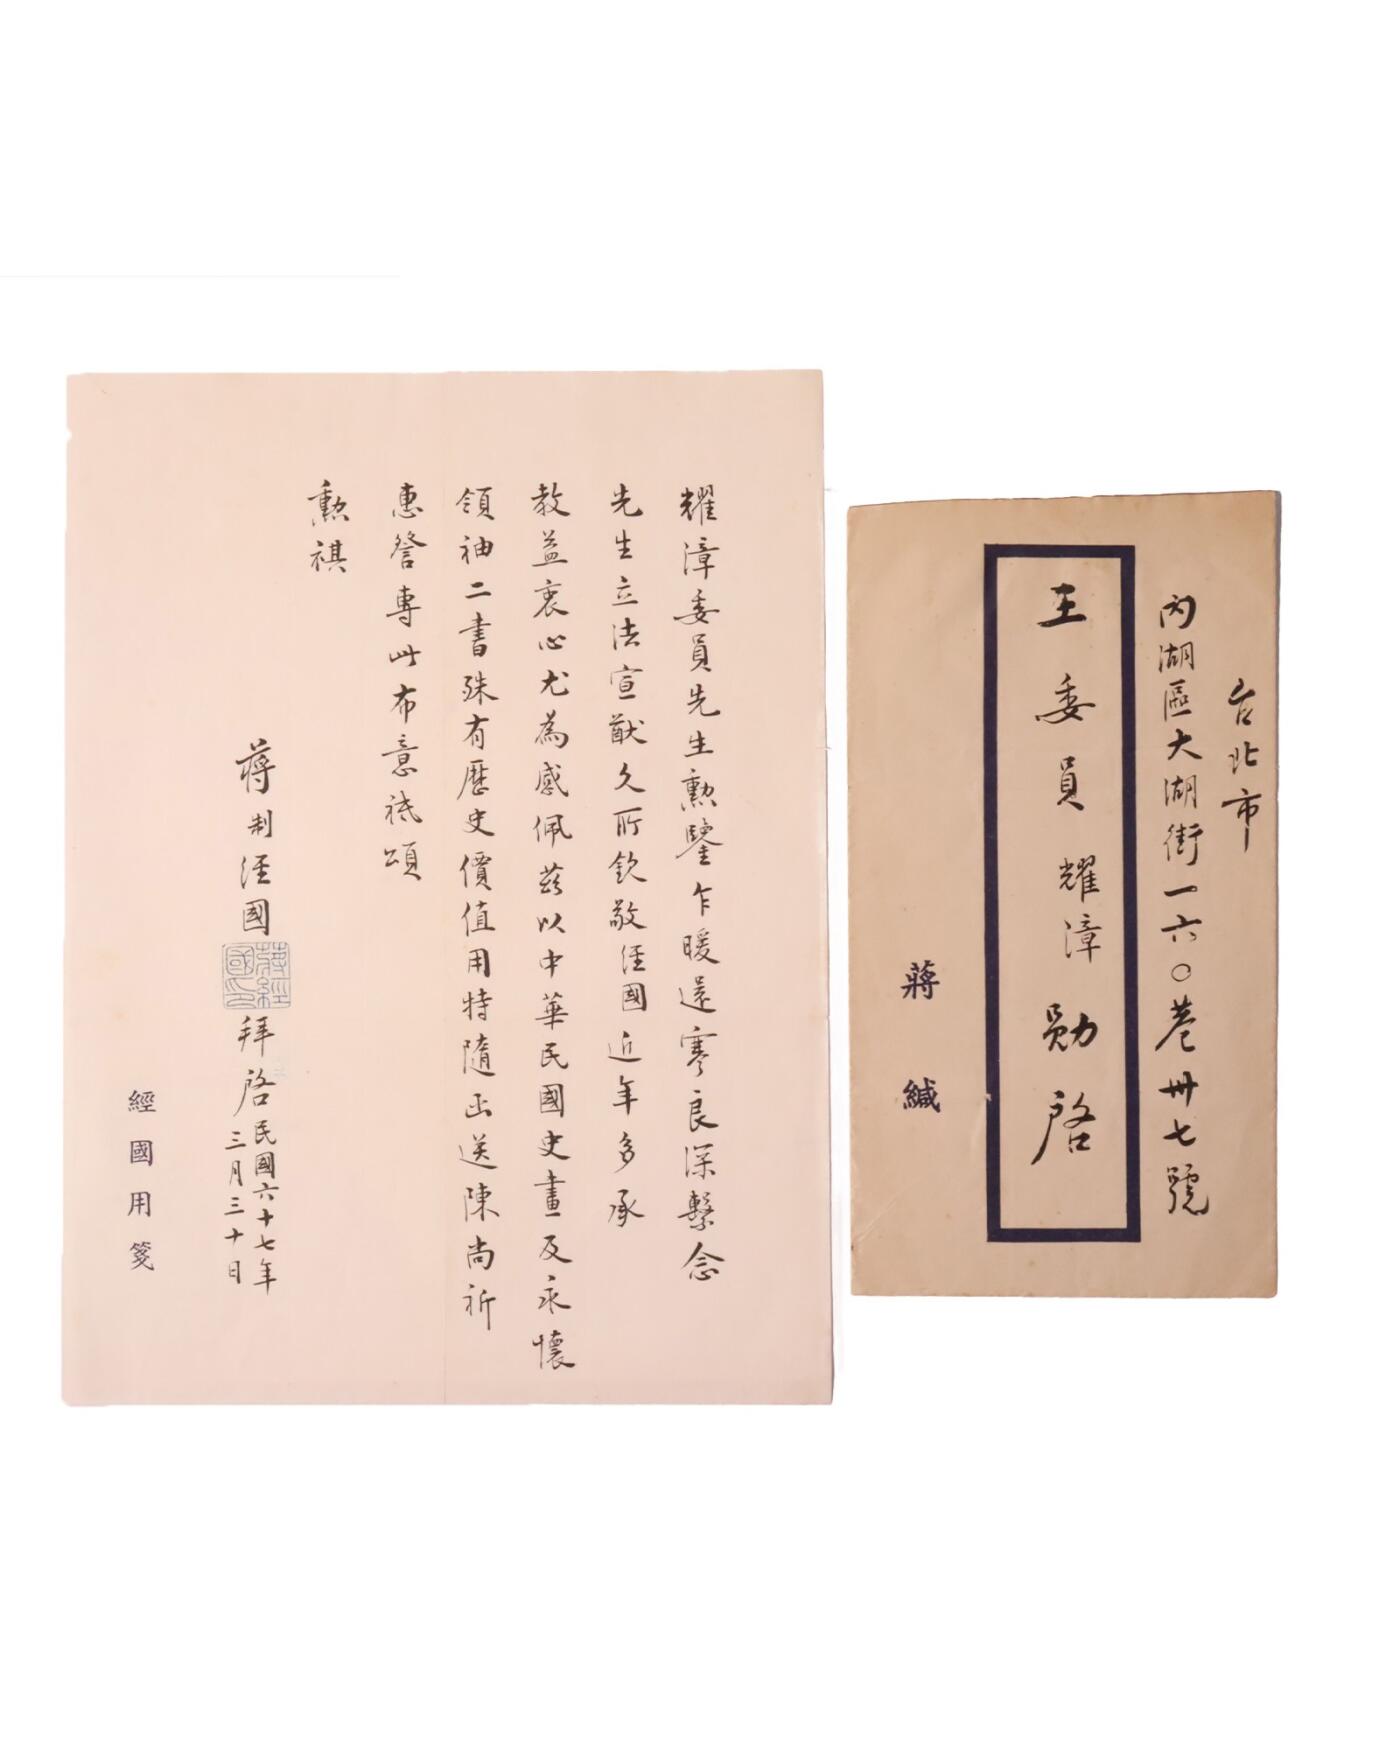 耀漳委員先生勳鑒乍暖還寒良深繫念
先生立法宣猷久所欽敬経國近年多承
教益衷心尤為感佩茲以中華民國史畫及永懷
領袖二書殊有歷史價值用特隨函送陳尚祈
惠詧專此布意祗頌
勳祺
蔣制経國
蔣經國印
拜啓
民國六十七年
三月三十日
經國用箋
台北市
內湖區大湖街一六〇巷卅七號
王委員耀漳勛啓
蔣緘